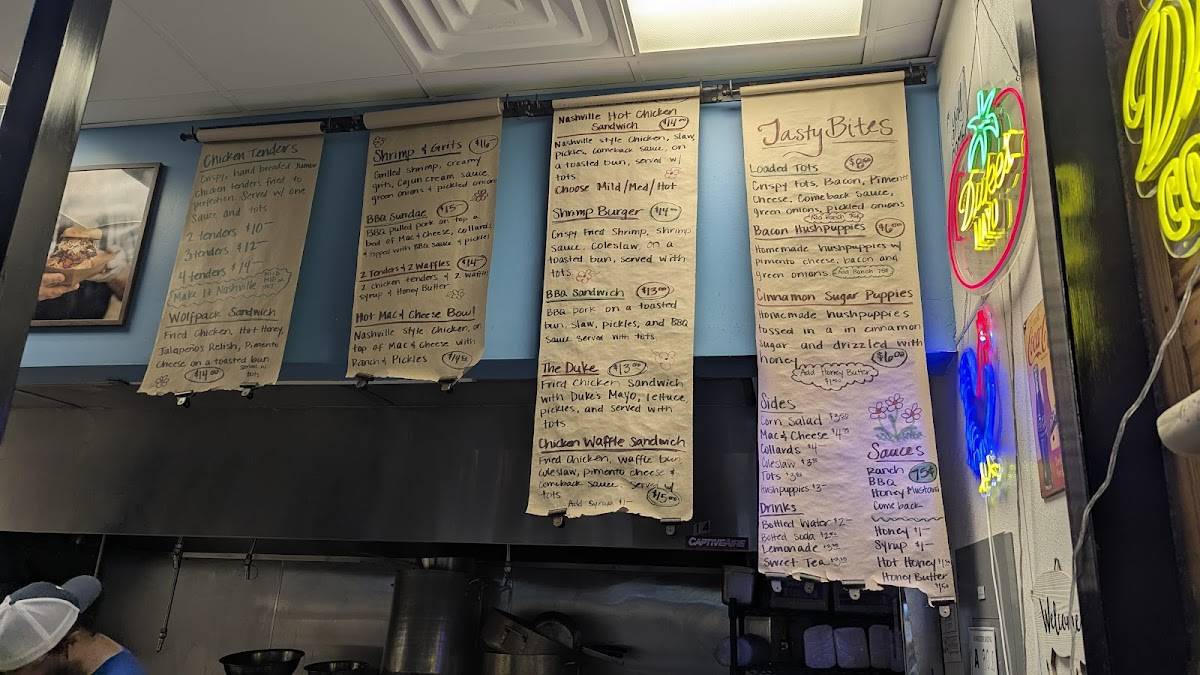 Chicken Tenders
Crispy, hand breaded Jumbo
Chicken tenders fried to
perfection. Served w/ one
Sauce and tots
2 tenders $10-
3 tenders $12-
4 tenders $14-
Make it Nashville
Wolfpack Sandwich
Fried Chicken, Hot Honey,
Jalapeños Relish, Pimento
Cheese on a toasted bun
served w/
tots
$14.00
Shrimp & Grits $16-
Grilled shrimp, creamy
grits, Cajun cream sauce,
green onions & pickled onion
BBQ Sundae $15-
BBQ pulled pork on top a
bed of Mac & Cheese, collards
& topped with BBQ sauce & pickle
2 Tenders & 2 Waffles $14-
2 chicken tenders & 2 waffles
syrup & Honey Butter
Hot Mac & Cheese Bowl
Nashville Style Chicken, on
top of Mac & Cheese with
Ranch & Pickles $14.00
Nashville Hot Chicken
Sandwich $14.00
Nashville style Chicken, slaw,
pickles, comeback sauce, on
a toasted bun, served w/
tots
Choose Mild/Med/Hot
Shrimp Burger $14-
Crispy Fried Shrimp, shrimp
Sauce, Coleslaw on a
toasted bun, served with
tots
BBQ Sandwich $13.00
BBQ pork on a toasted
bun, slaw, pickles, and BBQ
Sauce served with tots
The Duke $13.00
Fried Chicken Sandwich
with Duke's Mayo, lettuce
pickles, and served with
tots
Chicken Waffle Sandwich
Fried Chicken, Waffle bun
Coleslaw, pimento cheese &
Comeback Sauce, Served w/
tots $15.00
Add Syrup $1-
Tasty Bites
Loaded Tots $8.00
Crispy tots, Bacon, Pimento
Cheese, Comeback Sauce,
green onions, pickled onions
Add Ranch 75¢
Bacon Hushpuppies $6.00
Homemade hushpuppies w/
pimento cheese, bacon and
green onions Add Ranch 75¢
Cinnamon Sugar Puppies
Homemade hushpuppies
tossed in a in cinnamon
sugar and drizzled with
honey $6.00
Add Honey Butter
$1.50
Sides
Corn Salad $3.50
Mac & Cheese $4.50
Collards $4-
Coleslaw $3.50
Tots $3.50
Hushpuppies $3-
Drinks
Bottled Water $2-
Botted Soda
Lemonade
Sweet Tea
Sauces
Ranch 75¢
BBQ
Honey Mustard
Comeback
Honey $1-
Syrup $1-
Hot Honey
Honey Butter
$1.50
CAPTIVEAIRE
Duke's
MAYO
Welcome
A